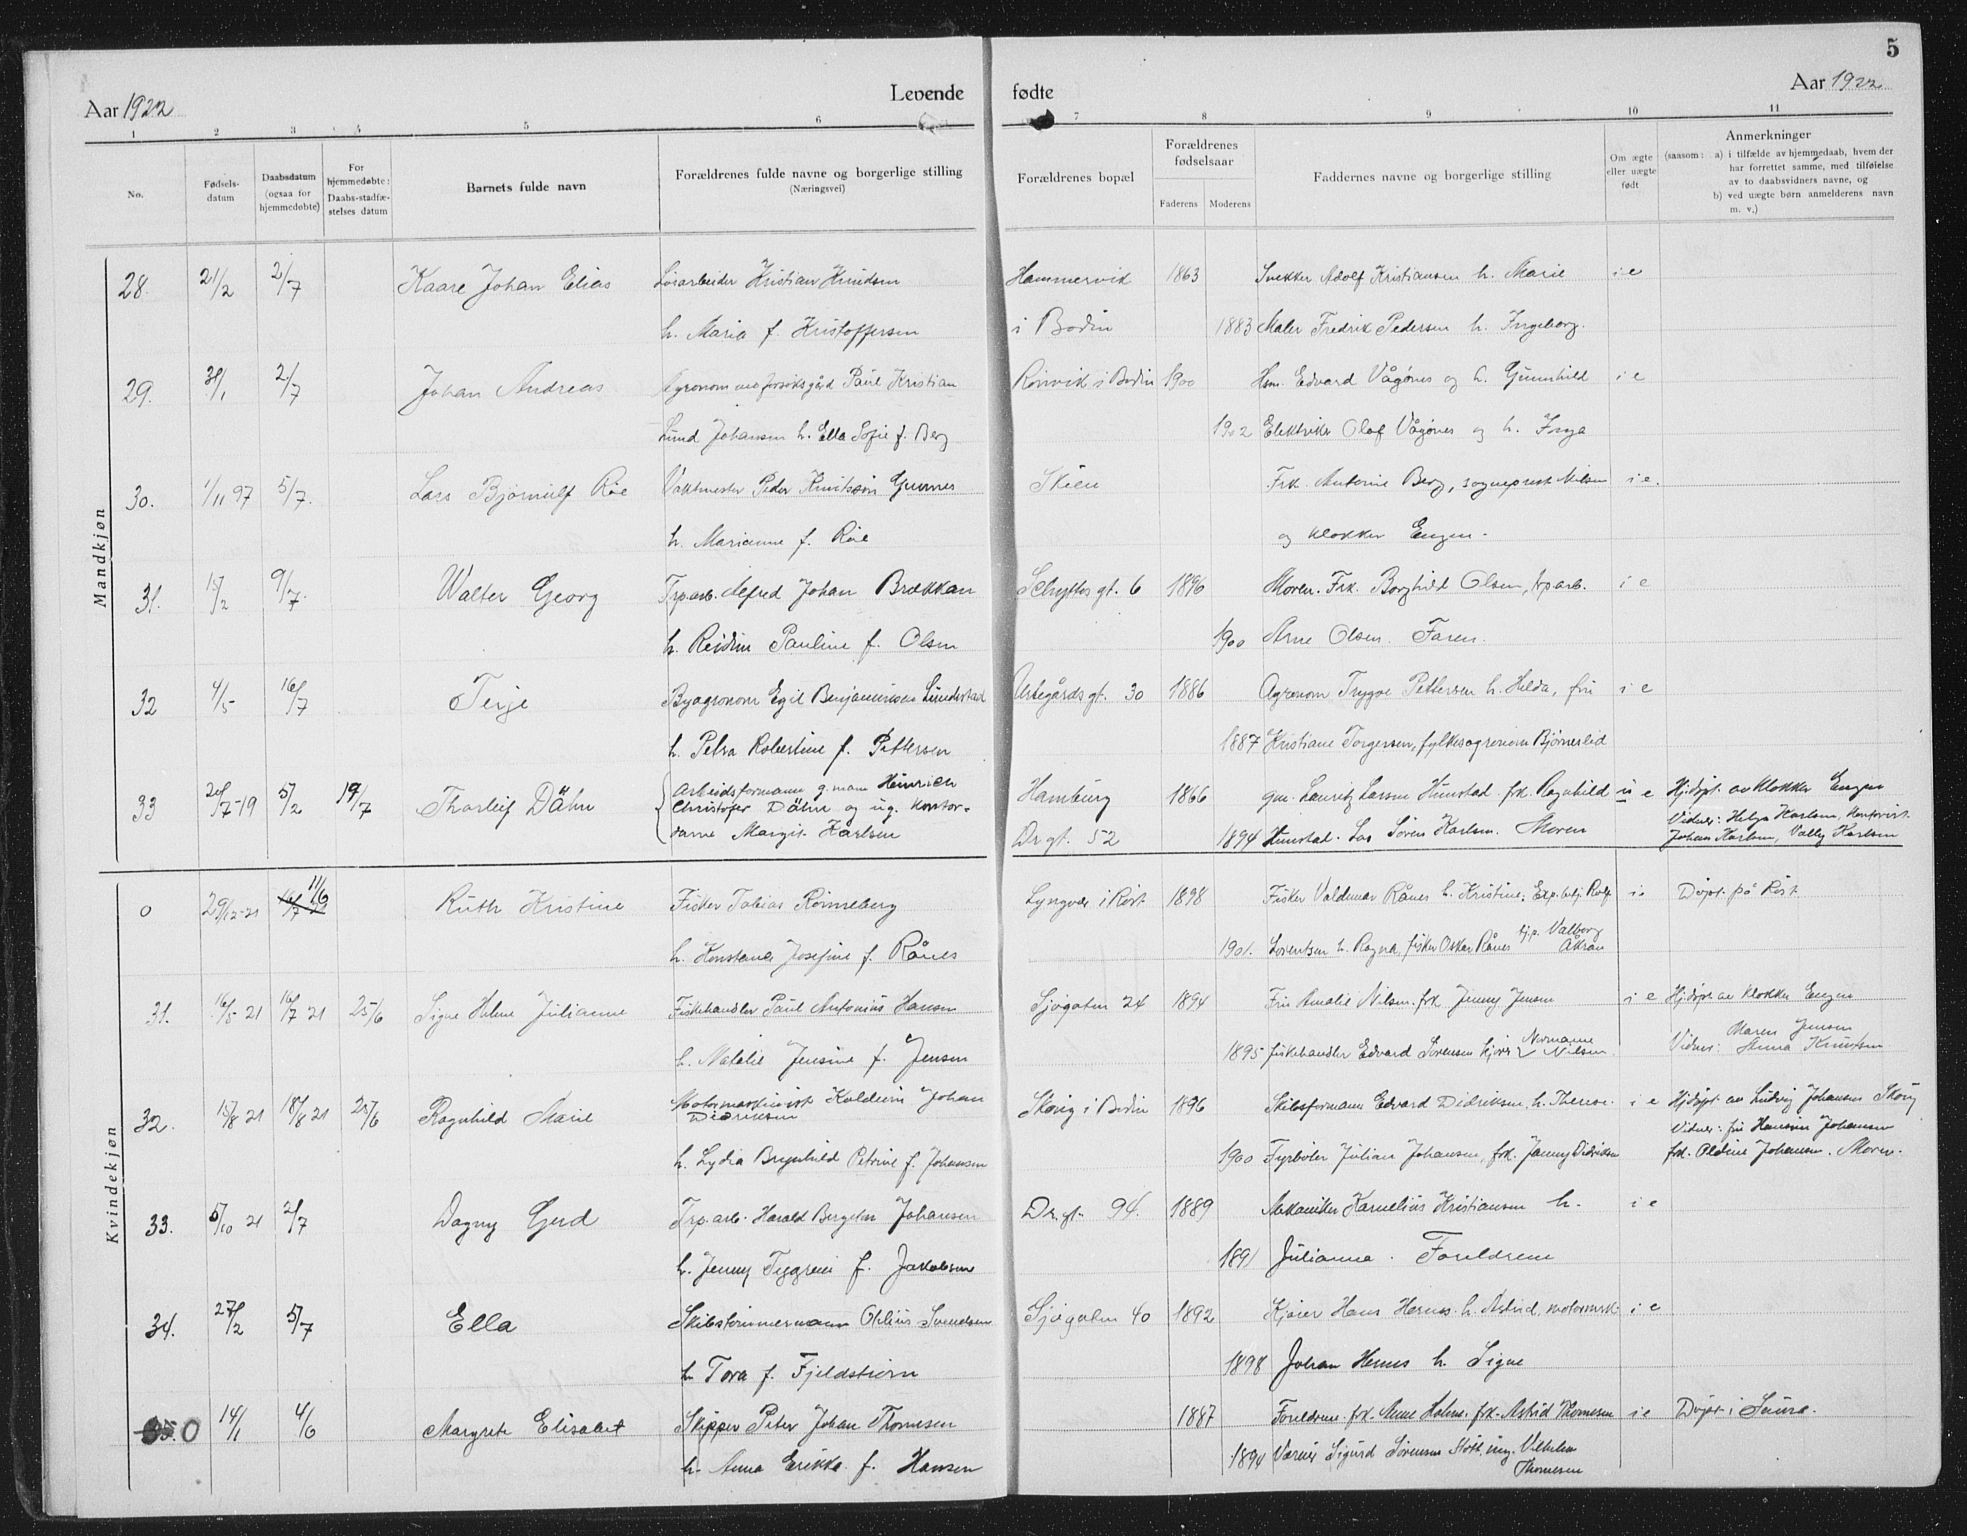 5
Aar 1922
Levende
fødte
Aar 1922
1 2 3 4 5 6 7 8 9 10 11
No.
Fødsels-
datum
Daabsdatum
(ogsaa for
hjemmedøbte)
For
hjemmedøbte:
Daabs-stadfæ-
stelses datum
Barnets fulde navn
Forældrenes fulde navne og borgerlige stilling
(Næringsvei)
Forældrenes bopæl
Forældrenes
fødselsaar
Faderens
Moderens
Faddernes navne og borgerlige stilling
Om ægte
eller uægte
født
Anmerkninger
(saasom: a) i tilfælde av hjemmedaab, hvem der
har forrettet samme, med tilføielse
av to daabsvidners navne, og
b) ved uægte børn anmelderens navn
m. v.)
Mandkjøn
28. 21/2 2/7 Kaare Johan Elias Løsarbeider Kristian Knudsen Hammervik 1863 Snekker Adolf Kristiansen h. Marie i e
h. Maria f. Kristoffersen i Bodin 1883 Maler Fredrik Pedersen h. Ingeborg.
29. 31/1 2/7 Johan Andreas Agronom ved forsøksgård Paul Kristian Rønvik i Bodin 1900 Hsm. Edvard Vågønes og h. Gunnhild i e
Lund Johansen h. Ella Sofie f. Berg 1902 Elektriker Olaf Vågønes og h. Inga
30. 1/11 97 5/7. Lars Bjørnulf Røe Vaktmester Peder Gumnes Skien Frk. Antonie Berg, sogneprest Nilsen i e.
h. Marianne f. Røe og klokker Engen.
31. 15/2 9/7. Walter Georg Trp.arb. Alfred Johan Brækkan Schyttes gt. 6 1896 Moren. Frk. Borghild Olsen, trp.arb. i e
h. Reidun Pauline f. Olsen 1900 Arne Olsen. Faren.
32 4/5 16/7 Terje Byagronom Egil Benjaminsen Lundestad gt. 30 1886 Agronom Trygve Pettersen h. Helda, fru i e
h. Petra Robertine f. Pettersen 1887 Kristiane Torgersen, fylkesagronom Bjørnerlid
33 20/7-19 5/2 19/7 Thorleif Dähn Arbeidsformann g. mann Heinrich Hamburg 1866 gm. Lauritz Larsen Hunstad. frk. Ragnhild u e Hjdøpt. av klokker Engen
Christofer Dähn og ug. kontor-
dame Margit Karlsen Dr gt. 52 1894 Hunstad. Søren Karlsen. Moren
Vidner: Helga Karlsen, kontorist.
Johan Karlsen, Valby Karlsen
Kvindekjøn
0 29/12-21 11/6 Ruth Kristine Fisker Tobias Rønneberg Lyngvær i Røst 1898 Fisker Valdemar Rånes h. Kristine. Exp.betj. Rolf i e Døpt på Røst.
h. Konstance Josefine f. Rånes 1901. Lorentsen h. Ragna, fisker Oskar Rånes tjp. Valborg
Åkran
31. 16/5 21 16/7 21 25/6 Signe Helene Julianne Fiskehandler Paul Antonius Hansen Sjøgaten 24 1894 Fru Amalie Nilsen. frk. Jenny Jensen i e Hjdøpt av klokker Engen
h. Natalie Jensine f. Jensen 1895 fiskehandler Edvard Sørensen Normanne
Nilsen
Vidner: Maren Jensen
Anna Knutsen
32. 15/8 21 18/8 21 25/6 Ragnhild Marie Motormaskinist Johan
Didriksen Skeig i Bodin 1896 Skibsformann Edvard Didriksen, h. Therese. i e Hjdøpt av Ludvig Johansen Skeig
h. Lydia Brynhild Petrine f. Johansen 1900 Fyrbøter Julian Johansen, frk. Jenny Didriksen
Vidner: fru Hansine Johansen
frk. Oldine Johansen. Moren.
33. 5/10 21 2/7 Dagny Gerd Trp.arb. Harald Johansen Dr.gt. 94. 1889 Mekaniker Kornelius Kristiansen h. i e
h. Jenny f. Jakobsen 1891 Julianne. Foreldrene
34. 27/2 5/7 Ella Skibstømmermann Otelius Svendsen Sjøgaten 40 1892 Kjører Hans Hernes h. Astrid, motormsk. i e
h Tora f. Fjeldstiern 1898 Johan Hernes h. Signe
35. 0 14/1 4/6 Margrete Elisabet Skipper Peter Johan Thomesen 1887 Foreldrene. frk. Anne Holms. frk. Astrid Thomesen i e Døpt i Saura.
h. Anna Erikka f. Hansen 1894 Værnes Sigurd Sørensen Støtt. ing. Vilhelm
Thomesen